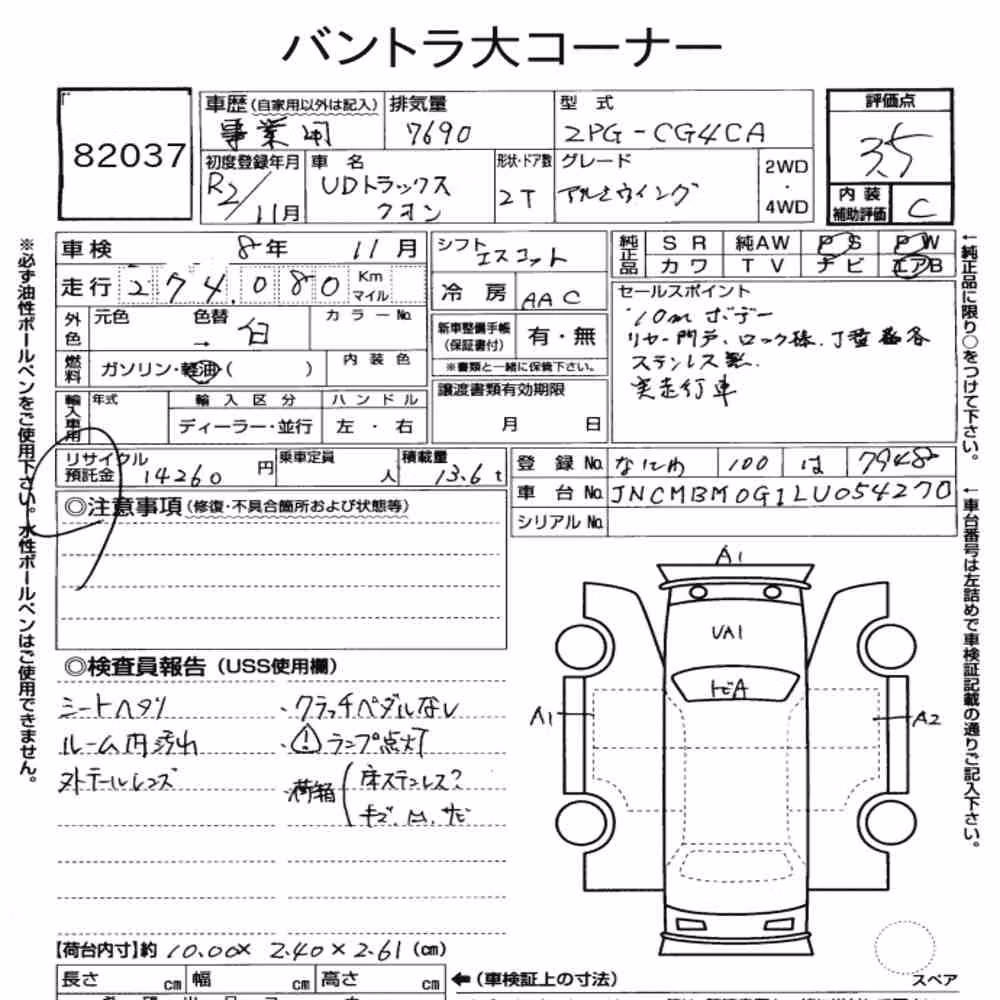 バントラ大コーナー
82037
車歴(自家用以外は記入)
事業用
排気量
7690
型式
2PG-CG4CA
評価点
3.5
初度登録年月
R2/11月
車名
UDトラックス
クオン
形状・ドア数
2T
グレード
アルミウイング
2WD
・
4WD
内装
補助評価
C
車検 8年 11月
走行 274,080 Km マイル
外色 元色 色替 → 白 カラーNo.
燃料 ガソリン・軽油・( ) 内装色
輸入車用 年式 輸入区分 ハンドル
ディーラー・並行 左・右
シフト
エスコット
冷房 AAC
新車整備手帳
(保証書付)
有・無
※書類と一緒に保管下さい。
譲渡書類有効期限
月 日
純正品 SR 純AW PS PW
カワ TV ナビ エアB
セールスポイント
10mボデー
リヤ門戸、ロック棒、丁番各
ステンレス製.
実走行車
リサイクル
預託金 14260 円
乗車定員 人
積載量 13.6 t
登録No. なにわ 100 は 7948
車台No. JNCMBM0G1LU054270
シリアルNo.
◎注意事項(修復・不具合箇所および状態等)
◎検査員報告(USS使用欄)
シートヘタリ
ルーム内汚れ
外テールレンズ
・クラッチペダルなし
・⚠ランプ点灯
・荷箱(床ステンレス?
キズ、凹、サビ
A1
UA1
トビA
A1
A2
【荷台内寸】約 10.00× 2.40×2.61(cm)
長さ cm 幅 cm 高さ cm
←(車検証上の寸法)
スペア
※必ず油性ボールペンをご使用下さい。水性ボールペンはご使用できません。
←純正品に限り○をつけて下さい。
←車台番号は左詰めで車検証記載の通りご記入下さい。